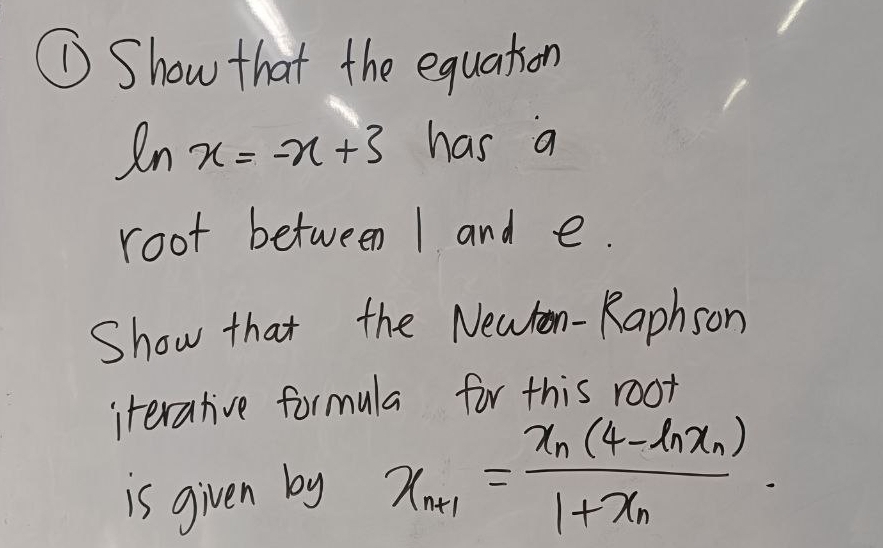 ① Show that the equation
ln x = -x + 3 has a
root between 1 and e.
Show that the Newton-Raphson
iterative formula for this root
is given by xₙ₊₁ = xₙ(4 - ln xₙ) / (1 + xₙ).